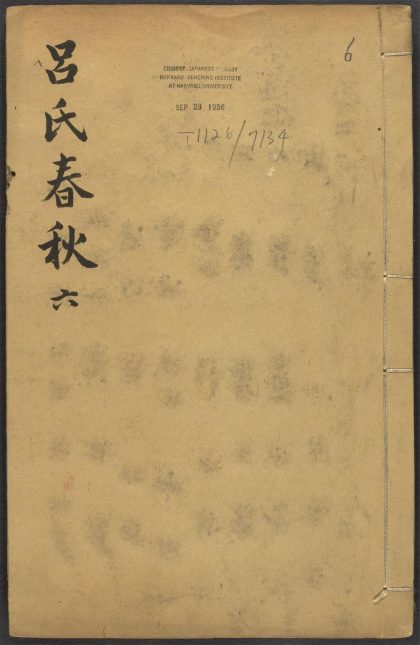 呂氏春秋 六
6
CHINESE-JAPANESE LIBRARY
HARVARD-YENCHING INSTITUTE
AT HARVARD UNIVERSITY
SEP 23 1956
T1126/7134